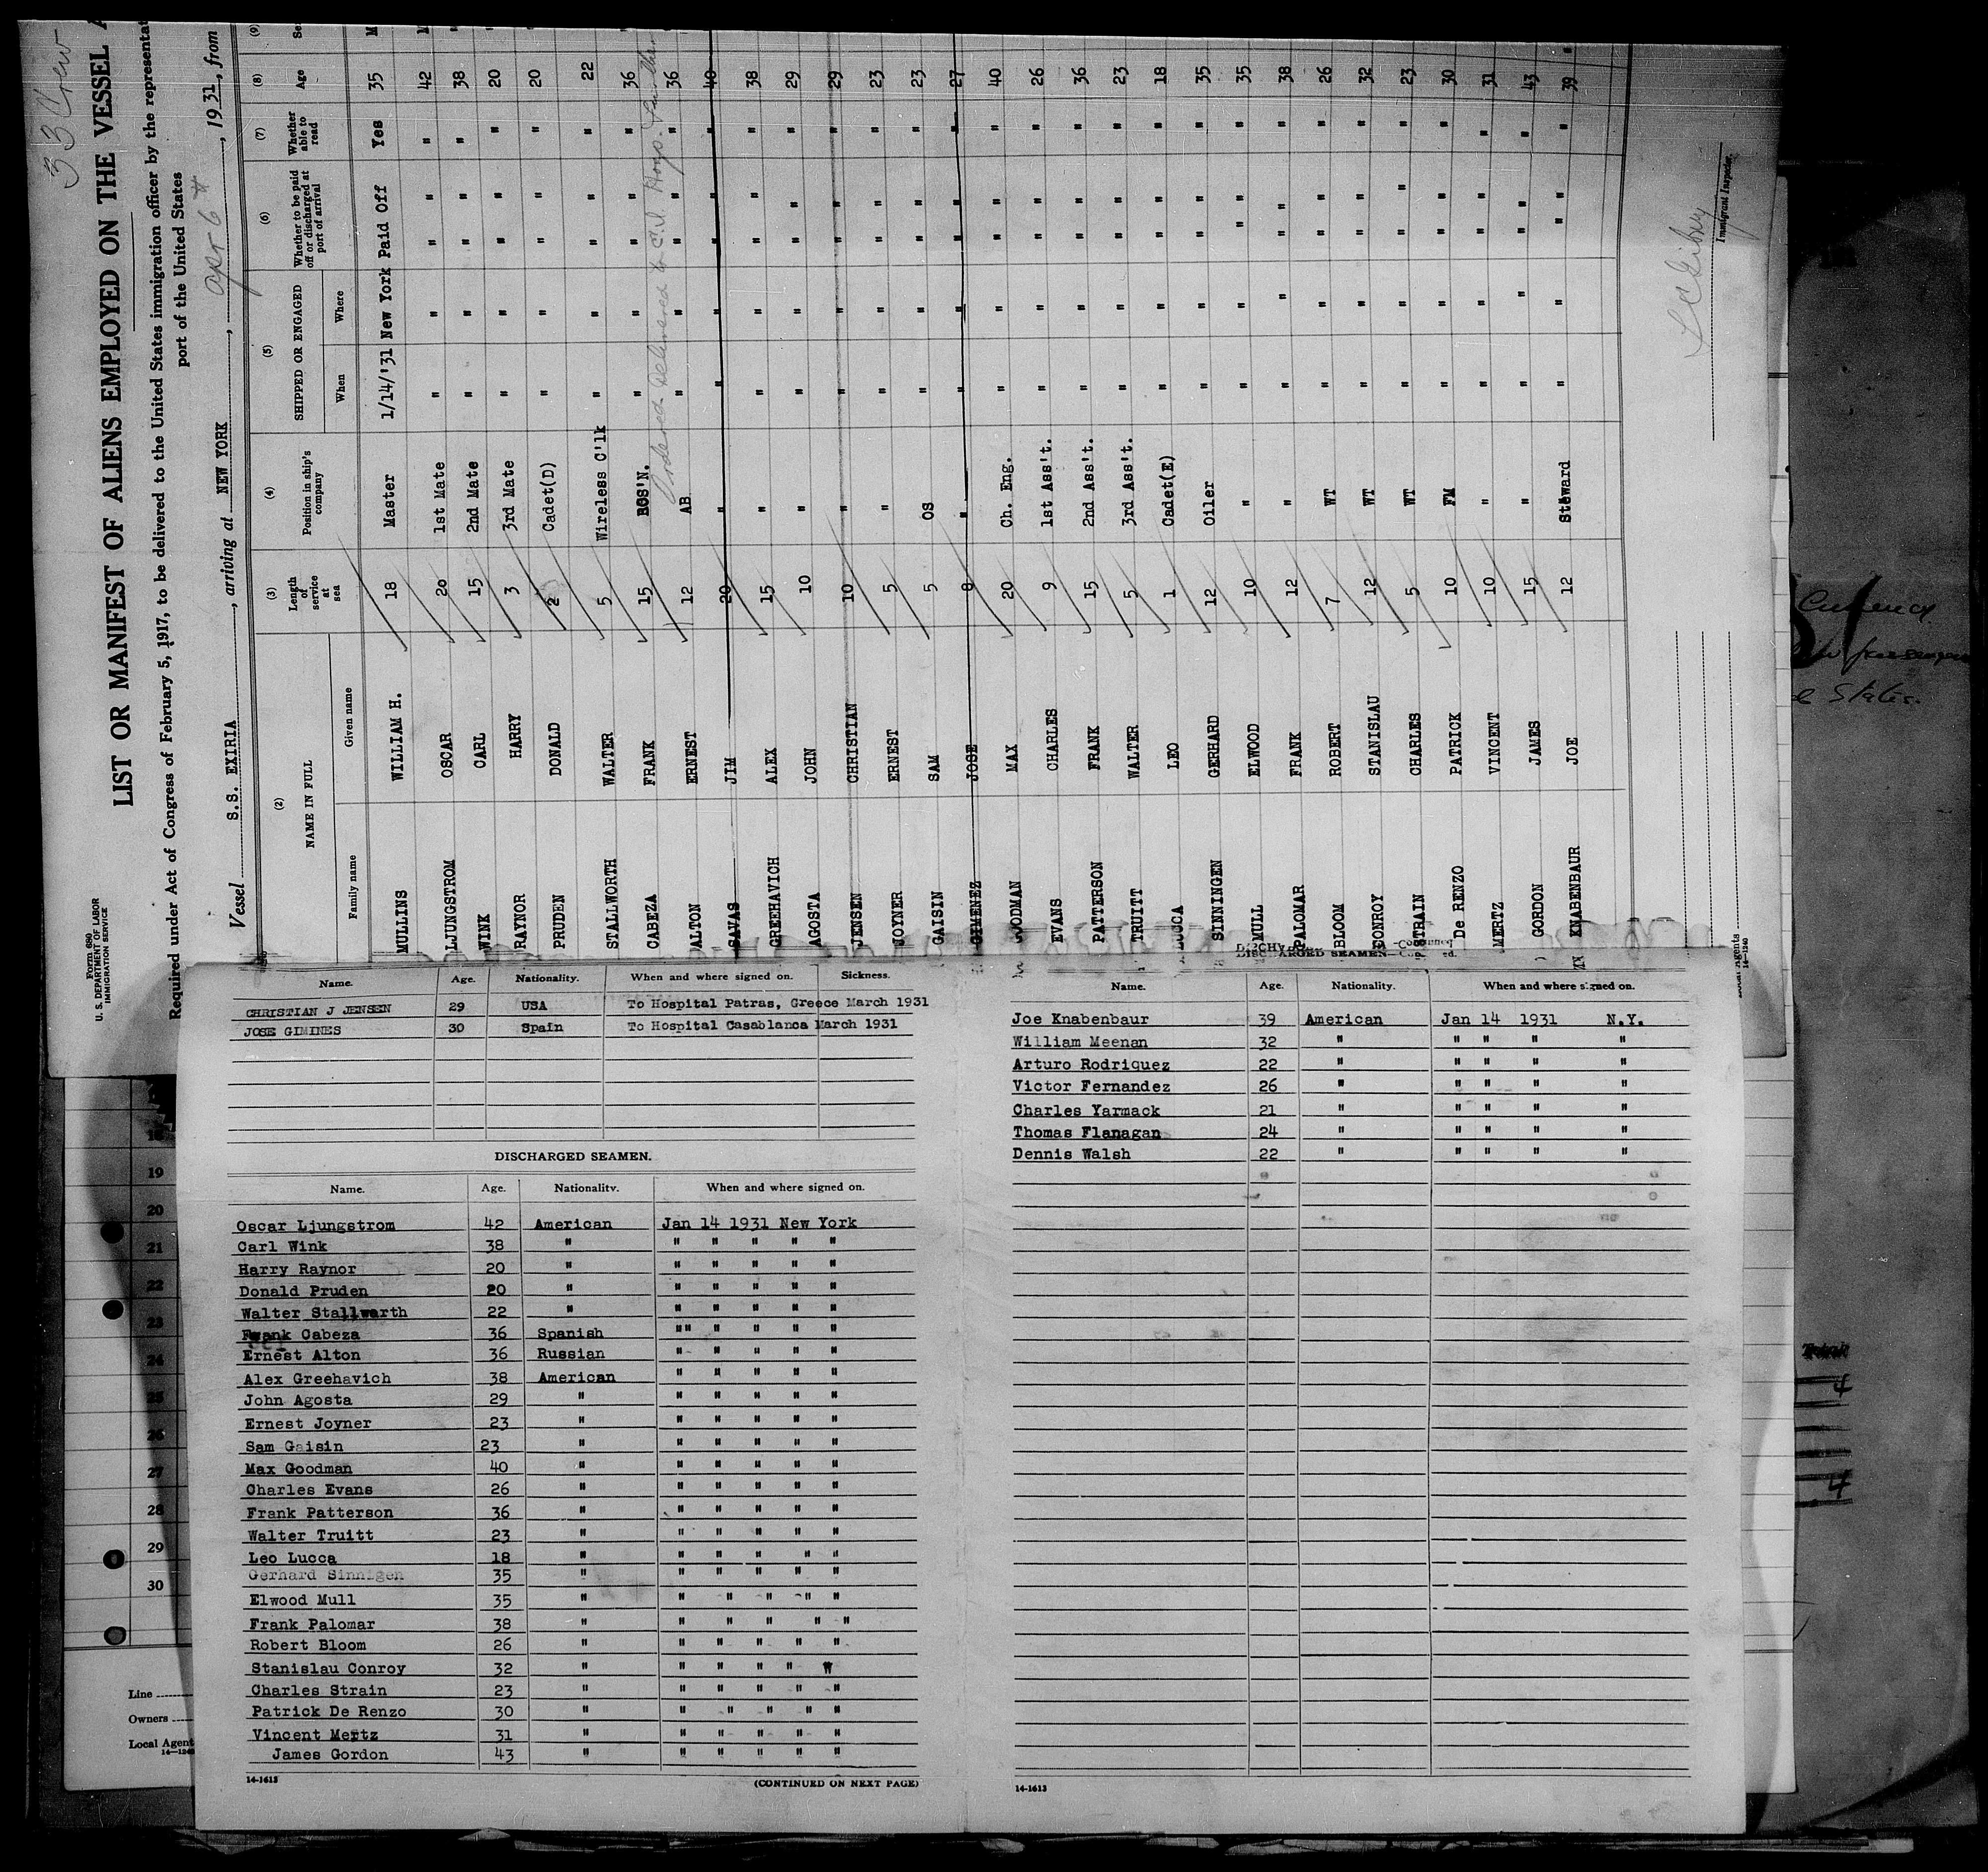 33 Crew
Form 680
U. S. DEPARTMENT OF LABOR
IMMIGRATION SERVICE
LIST OR MANIFEST OF ALIENS EMPLOYED ON THE VESSEL
Required under Act of Congress of February 5, 1917, to be delivered to the United States immigration officer by the
port of the United States
Vessel S.S. EXIRIA, arriving at NEW YORK, Apr 6th, 1931, from
(2) (3) (4) (5) (6) (7) (8) (9)
NAME IN FULL Length of service at sea Position in ship's company SHIPPED OR ENGAGED Whether to be paid off or discharged at port of arrival Whether able to read Age
Family name Given name When Where
MULLINS WILLIAM H. 18 Master 1/14/'31 New York Paid Off Yes 35 M
LJUNGSTROM OSCAR 20 1st Mate " " " " " 42
WINK CARL 15 2nd Mate " " " " " 38 "
RAYNOR HARRY 3 3rd Mate " " " " " 20 "
PRUDEN DONALD 2 Cadet(D) " " " " " 20 "
STALLWORTH WALTER 5 Wireless C'lk " " " " " 22 "
CABEZA FRANK 15 BOS'N. " " " " " 36 "
Ordered delivered to E.I. Hosp.
ALTON ERNEST 12 AB " " " " " 36 "
SAVAS JIM 20 " " " " " " 40 "
GREEHAVICH ALEX 15 " " " " " " 38 "
AGOSTA JOHN 10 " " " " " " 29 "
JENSEN CHRISTIAN 10 " " " " " " 29 "
JOYNER ERNEST 5 " " " " " " 23 "
GAISIN SAM 5 OS " " " " " 23 "
GIMENEZ JOSE 8 " " " " " " 27 "
GOODMAN MAX 20 Ch. Eng. " " " " " 40 "
EVANS CHARLES 9 1st Ass't. " " " " " 26 "
PATTERSON FRANK 15 2nd Ass't. " " " " " 36 "
TRUITT WALTER 5 3rd Ass't. " " " " " 23 "
LUCCA LEO 1 Cadet(E) " " " " " 18 "
SINNINGEN GERHARD 12 Oiler " " " " " 35 "
MULL ELWOOD 10 " " " " " " 35 "
PALOMAR FRANK 12 " " " " " " 38 "
BLOOM ROBERT 7 WT " " " " " 26 "
CONROY STANISLAU 12 WT " " " " " 32 "
STRAIN CHARLES 5 WT " " " " " 23 "
De RENZO PATRICK 10 FM " " " " " 30 "
MERTZ VINCENT 10 " " " " " " 31 "
GORDON JAMES 15 " " " " " " 43 "
KNABENBAUR JOE 12 Steward " " " " " 39 "
Immigrant Inspector.
Agents
14-1240
Name. Age. Nationality. When and where signed on. Sickness.
CHRISTIAN J JENSEN 29 USA To Hospital Patras, Greece March 1931
JOSE GIMINES 30 Spain To Hospital Casablanca March 1931
DISCHARGED SEAMEN.
Name. Age. Nationality. When and where signed on.
Oscar Ljungstrom 42 American Jan 14 1931 New York
Carl Wink 38 " " " " " "
Harry Raynor 20 " " " " " "
Donald Pruden 20 " " " " " "
Walter Stallwarth 22 " " " " " "
Frank Cabeza 36 Spanish "" " " " "
Ernest Alton 36 Russian " " " " "
Alex Greehavich 38 American " " " " "
John Agosta 29 " " " " " "
Ernest Joyner 23 " " " " " "
Sam Gaisin 23 " " " " " "
Max Goodman 40 " " " " " "
Charles Evans 26 " " " " " "
Frank Patterson 36 " " " " " "
Walter Truitt 23 " " " " " "
Leo Lucca 18 " " " " " "
Gerhard Sinnigen 35 " " " " " "
Elwood Mull 35 " " " " " "
Frank Palomar 38 " " " " " "
Robert Bloom 26 " " " " " "
Stanislau Conroy 32 " " " " " "
Charles Strain 23 " " " " " "
Patrick De Renzo 30 " " " " " "
Vincent Mertz 31 " " " " " "
James Gordon 43 " " " " " "
14-1613 (CONTINUED ON NEXT PAGE)
DISCHARGED SEAMEN—Continued.
Name. Age. Nationality. When and where signed on.
Joe Knabenbaur 39 American Jan 14 1931 N.Y.
William Meenan 32 " " " " "
Arturo Rodriquez 22 " " " " "
Victor Fernandez 26 " " " " "
Charles Yarmack 21 " " " " "
Thomas Flanagan 24 " " " " "
Dennis Walsh 22 " " " " "
14-1613
19
20
21
22
23
24
25
26
27
28
29
30
Line
Owners
Local Agent
14-1240
Currency
States.
4
4